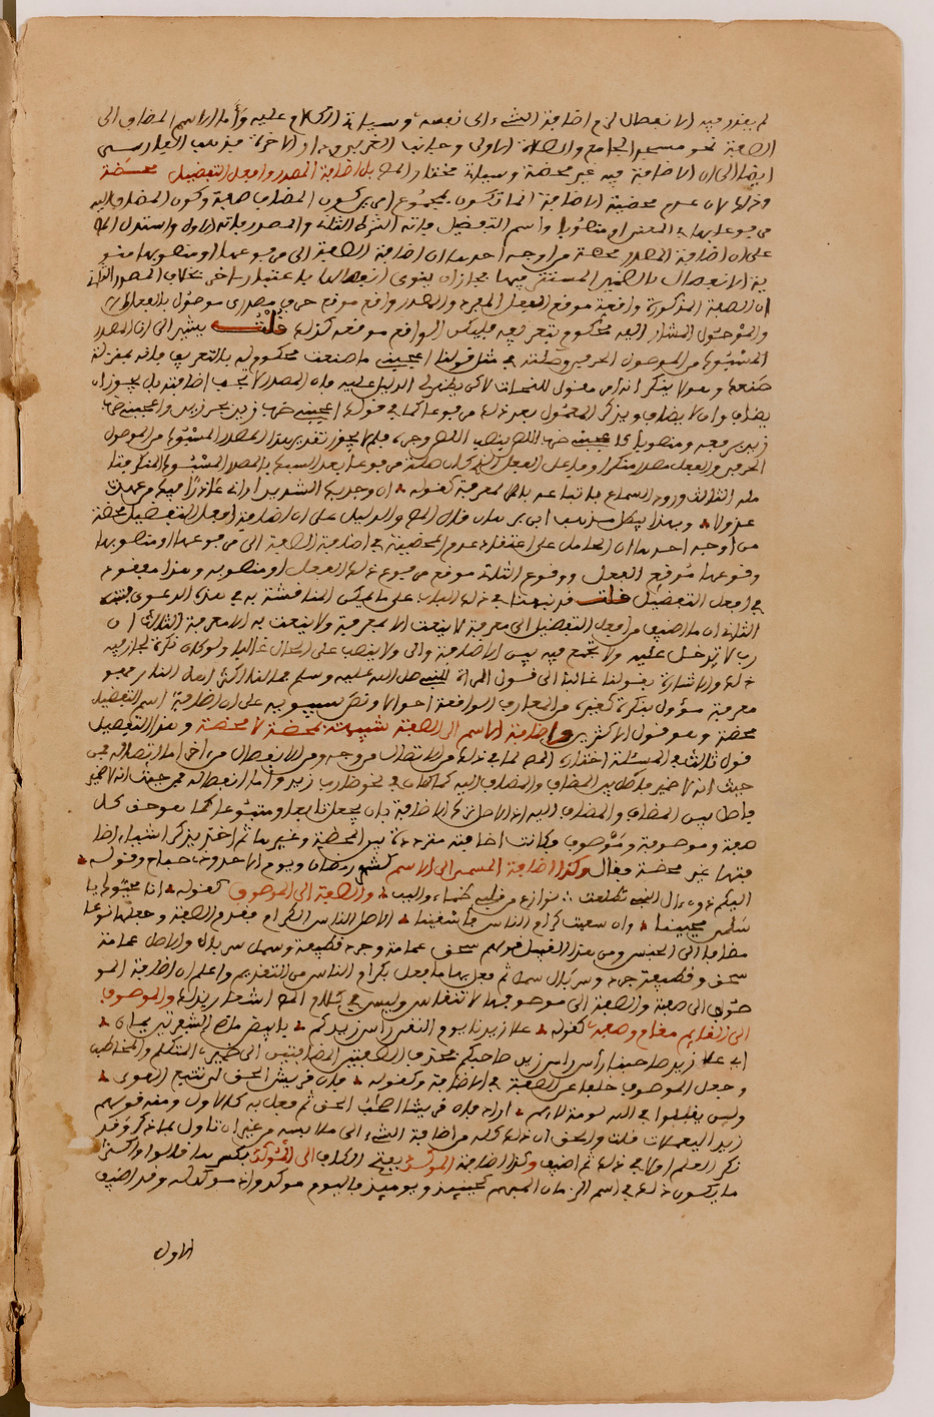 لم يقدر فيه الانفصال لزم اضافة الشيء الى نفسه وسيأتي الكلام عليه وأما الاسم المضاف الى
الصفة نحو مسجد الجامع وصلاة الاولى وجانب الغربي ودار الاخرة فمذهب الفارسي
ايضا الى ان الاضافة فيه غير محضة وسيأتي مختار المص بل اضافة المصدر وافعل التفضيل محضة
وذلك لان عدم محضية الاضافة انما تكون بمجموع امرين كون المضاف صفة وكون المضاف اليه
مرفوعا بها في المعنى او منصوبا واسم التفضيل فاته الشرط الثاني والمصدر فاته الاول واستدل المص
على ان اضافة المصدر محضة من اوجه احدها ان اضافة الصفة الى مرفوعها او منصوبها منو
ية الانفصال بالضمير المستتر فيها فجاز ان ينوى انفصالها باعتبار اخر بخلاف المصدر الثاني
ان الصفة المذكورة واقعة موقع الفعل المفرد والمصدر واقع موقع حرف مصدري موصول بالفعل
والموصول المشار اليه محكوم بتعريفه فليكن الواقع موقعه كذلك قلت يشير الى ان المصدر
المسبوك من الموصول الحرفي وصلته في مثل قولنا اعجبني ما صنعت محكوم له بالتعريف فانه بمنزلة
صنعك وهو لا ينكر
يضاف وان لا يضاف ويذكر المعمول بعد ذلك مرفوعا كما في قولك اعجبني ضرب زيد
زيد برفعه ومنصوبا كاعجبني ضرب اللص
الحرفي والفعل مصدرا منكرا
الثالث ورود السماع باتباعه بالمعرفة كقوله ان وجدي بك الشديد اراني عاذرا فيك من عهدت
عذولا وبهذا يبطل مذهب ابن برهان قال المص والدليل على ان اضافة افعل التفضيل محضة
من اوجه احدها ان الحامل على اعتقاد عدم المحضية في اضافة الصفة الى مرفوعها او منصوبها
وقوعها موقع الفعل ووقوع الثاني موقع مرفوع ذلك الفعل او منصوبه وهذا مفقود
في افعل التفضيل قلت قد نبهنا في ذلك الباب على ما يمكن المناقشة به في هذه الدعوى
الثاني ان ما اضيف من افعل التفضيل الى معرفة لا ينعت الا بمعرفة ولا ينعت به الا معرفة الثالث ان
رب لا تدخل عليه ولا تجمع فيه بين الاضافة وال ولا ينصب على الحال غالبا ولو كان نكرة لجاز فيه
ذلك والاشارة بقولنا غالبا الى قول المرأة للنبي صلى الله عليه وسلم
معرفة مؤول بنكرة كغيره من المعارف الواقعة احوالا ونص سيبويه على ان اضافة اسم التفضيل
محضة وهو قول الاكثرين واضافة الاسم الى الصفة شبيهة بمحضة لا محضة وهذا التفصيل
قول ثالث في المسئلة اختاره المص لما في ذلك من الاتصال من وجه ومن الانفصال من اخر اما الاتصال فمن
حيث انه لا ضمير فاصل بين المضاف والمضاف اليه كما كان في نحو ضارب زيد واما انفصاله فمن حيث انه لا ضمير
فاصل بين المضاف والمضاف اليه
صفة وموصوفة وموصوف فكانت اضافته مترددة بين المحضة وغيرها ثم اخذ يذكر اشياء اضا
فتها غير محضة فقال وكذا اضافة المسمى الى الاسم كشهر رمضان ويوم الاحد وذات صباح وقوله
اليكم ذوي ال النبي تطلعت نوازع من قلبي ظماء والبب والصفة الى الموصوف كقوله انا محيوك يا
سلمى فحيينا وان سقيت كرام الناس فاسقينا الاصل الناس الكرام فقدم الصفة وجعلها نوعا
مضافا الى الجنس ومن هذا القبيل قولهم سحق عمامة وجرد قطيفة وسمل سربال والاصل عمامة
سحق وقطيفة جرد وسربال سمل ثم فعل بها ما فعل بكرام الناس من التقديم واعلم ان اضافة المو
صوف الى صفة والصفة الى موصوفها لا تنقاس وليس في كلام المص اشعار بذلك والموصوف
الى القايم مقام وصف كقوله علا زيدنا يوم النقى راس زيدكم بابيض ماضي الشفرتين يمان
اي علا زيد صاحبنا راس زيد صاحبكم فحذف الصفتين المضافتين الى ضمير المتكلم والمخاطب
وجعل الموصوف خلفا عن الصفة في الاضافة وكقوله فان قريش الحق لن تتبع الهوى
وليس يقبلوا في الله لومة لائم اراد فان قريشا اصحاب الحق ثم فعل به كالاول ومنه قولهم
زيد اليعملات قلت والحق ان ذلك كله من اضافة الشيء الى ملابسه من غير ان تاول بما ذكر وقد
نكر العلم اولا في ذلك ثم اضيف وكذا اضافة المؤكد بفتح الكاف الى المؤكد بكسرها قالوا واكثر
ما يكون ذلك في اسم الزمان المبهم كحينئذ ويومئذ فاليوم مؤكد واذ مؤكد له وقد اضيف
الاول